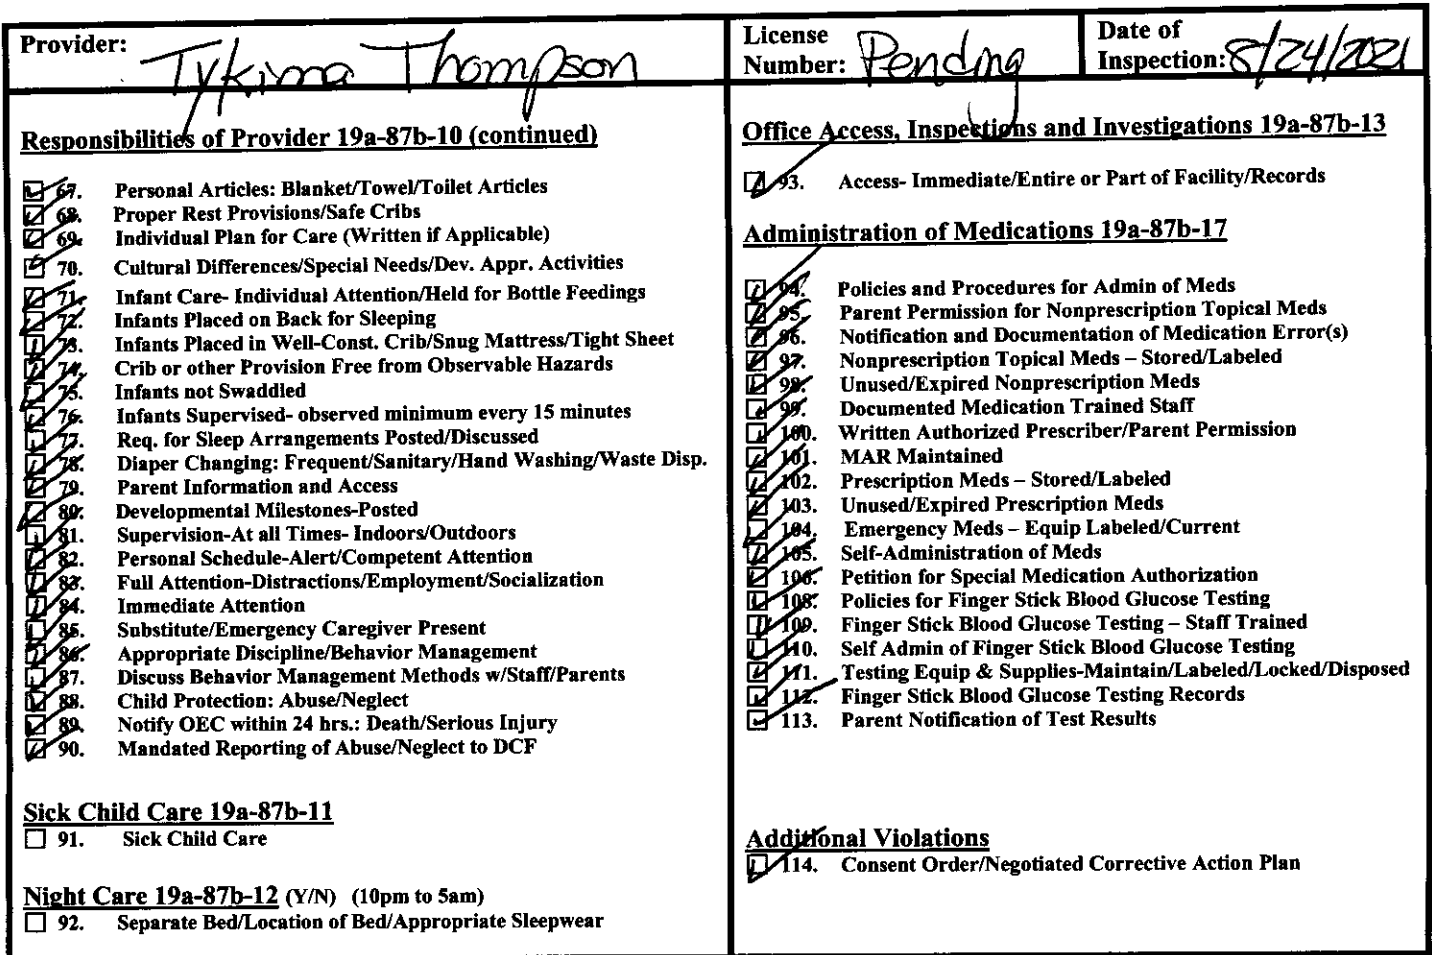 Provider: Tykima Thompson
License Number: Pending
Date of Inspection: 8/24/2021
Responsibilities of Provider 19a-87b-10 (continued)
67. Personal Articles: Blanket/Towel/Toilet Articles
68. Proper Rest Provisions/Safe Cribs
69. Individual Plan for Care (Written if Applicable)
70. Cultural Differences/Special Needs/Dev. Appr. Activities
71. Infant Care- Individual Attention/Held for Bottle Feedings
72. Infants Placed on Back for Sleeping
73. Infants Placed in Well-Const. Crib/Snug Mattress/Tight Sheet
74. Crib or other Provision Free from Observable Hazards
75. Infants not Swaddled
76. Infants Supervised- observed minimum every 15 minutes
77. Req. for Sleep Arrangements Posted/Discussed
78. Diaper Changing: Frequent/Sanitary/Hand Washing/Waste Disp.
79. Parent Information and Access
80. Developmental Milestones-Posted
81. Supervision-At all Times- Indoors/Outdoors
82. Personal Schedule-Alert/Competent Attention
83. Full Attention-Distractions/Employment/Socialization
84. Immediate Attention
85. Substitute/Emergency Caregiver Present
86. Appropriate Discipline/Behavior Management
87. Discuss Behavior Management Methods w/Staff/Parents
88. Child Protection: Abuse/Neglect
89. Notify OEC within 24 hrs.: Death/Serious Injury
90. Mandated Reporting of Abuse/Neglect to DCF
Sick Child Care 19a-87b-11
91. Sick Child Care
Night Care 19a-87b-12 (Y/N) (10pm to 5am)
92. Separate Bed/Location of Bed/Appropriate Sleepwear
Office Access, Inspections and Investigations 19a-87b-13
93. Access- Immediate/Entire or Part of Facility/Records
Administration of Medications 19a-87b-17
94. Policies and Procedures for Admin of Meds
95. Parent Permission for Nonprescription Topical Meds
96. Notification and Documentation of Medication Error(s)
97. Nonprescription Topical Meds – Stored/Labeled
98. Unused/Expired Nonprescription Meds
99. Documented Medication Trained Staff
100. Written Authorized Prescriber/Parent Permission
101. MAR Maintained
102. Prescription Meds – Stored/Labeled
103. Unused/Expired Prescription Meds
104. Emergency Meds – Equip Labeled/Current
105. Self-Administration of Meds
106. Petition for Special Medication Authorization
108. Policies for Finger Stick Blood Glucose Testing
109. Finger Stick Blood Glucose Testing – Staff Trained
110. Self Admin of Finger Stick Blood Glucose Testing
111. Testing Equip & Supplies-Maintain/Labeled/Locked/Disposed
112. Finger Stick Blood Glucose Testing Records
113. Parent Notification of Test Results
Additional Violations
114. Consent Order/Negotiated Corrective Action Plan